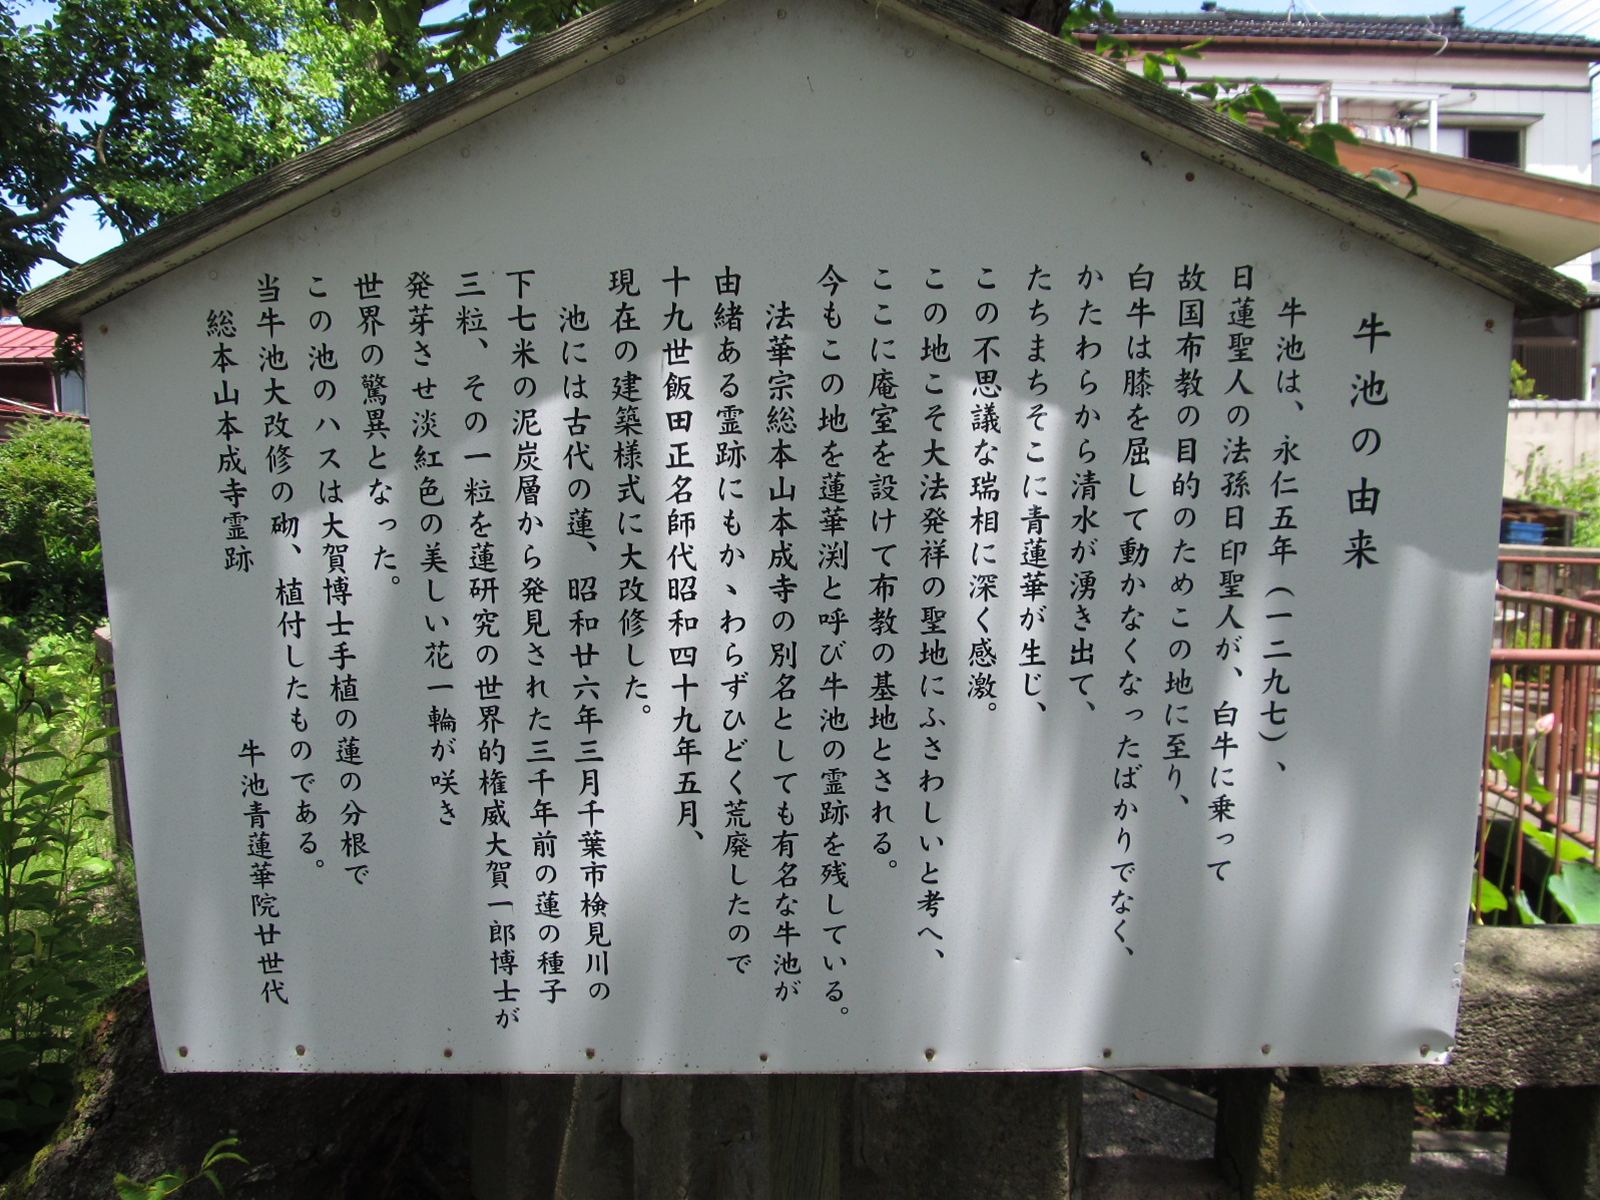 牛池の由来
牛池は、永仁五年(一二九七)、
日蓮聖人の法孫日印聖人が、白牛に乗って
故国布教の目的のためこの地に至り、
白牛は膝を屈して動かなくなったばかりでなく、
かたわらから清水が湧き出て、
たちまちそこに青蓮華が生じ、
この不思議な瑞相に深く感激。
この地こそ大法発祥の聖地にふさわしいと考へ、
ここに庵室を設けて布教の基地とされる。
今もこの地を蓮華渕と呼び牛池の霊跡を残している。
法華宗総本山本成寺の別名としても有名な牛池が
由緒ある霊跡にもかゝわらずひどく荒廃したので
十九世飯田正名師代昭和四十九年五月、
現在の建築様式に大改修した。
池には古代の蓮、昭和廿六年三月千葉市検見川の
下七米の泥炭層から発見された三千年前の蓮の種子
三粒、その一粒を蓮研究の世界的権威大賀一郎博士が
発芽させ淡紅色の美しい花一輪が咲き
世界の驚異となった。
この池のハスは大賀博士手植の蓮の分根で
当牛池大改修の砌、植付したものである。
総本山本成寺霊跡
牛池青蓮華院廿世代